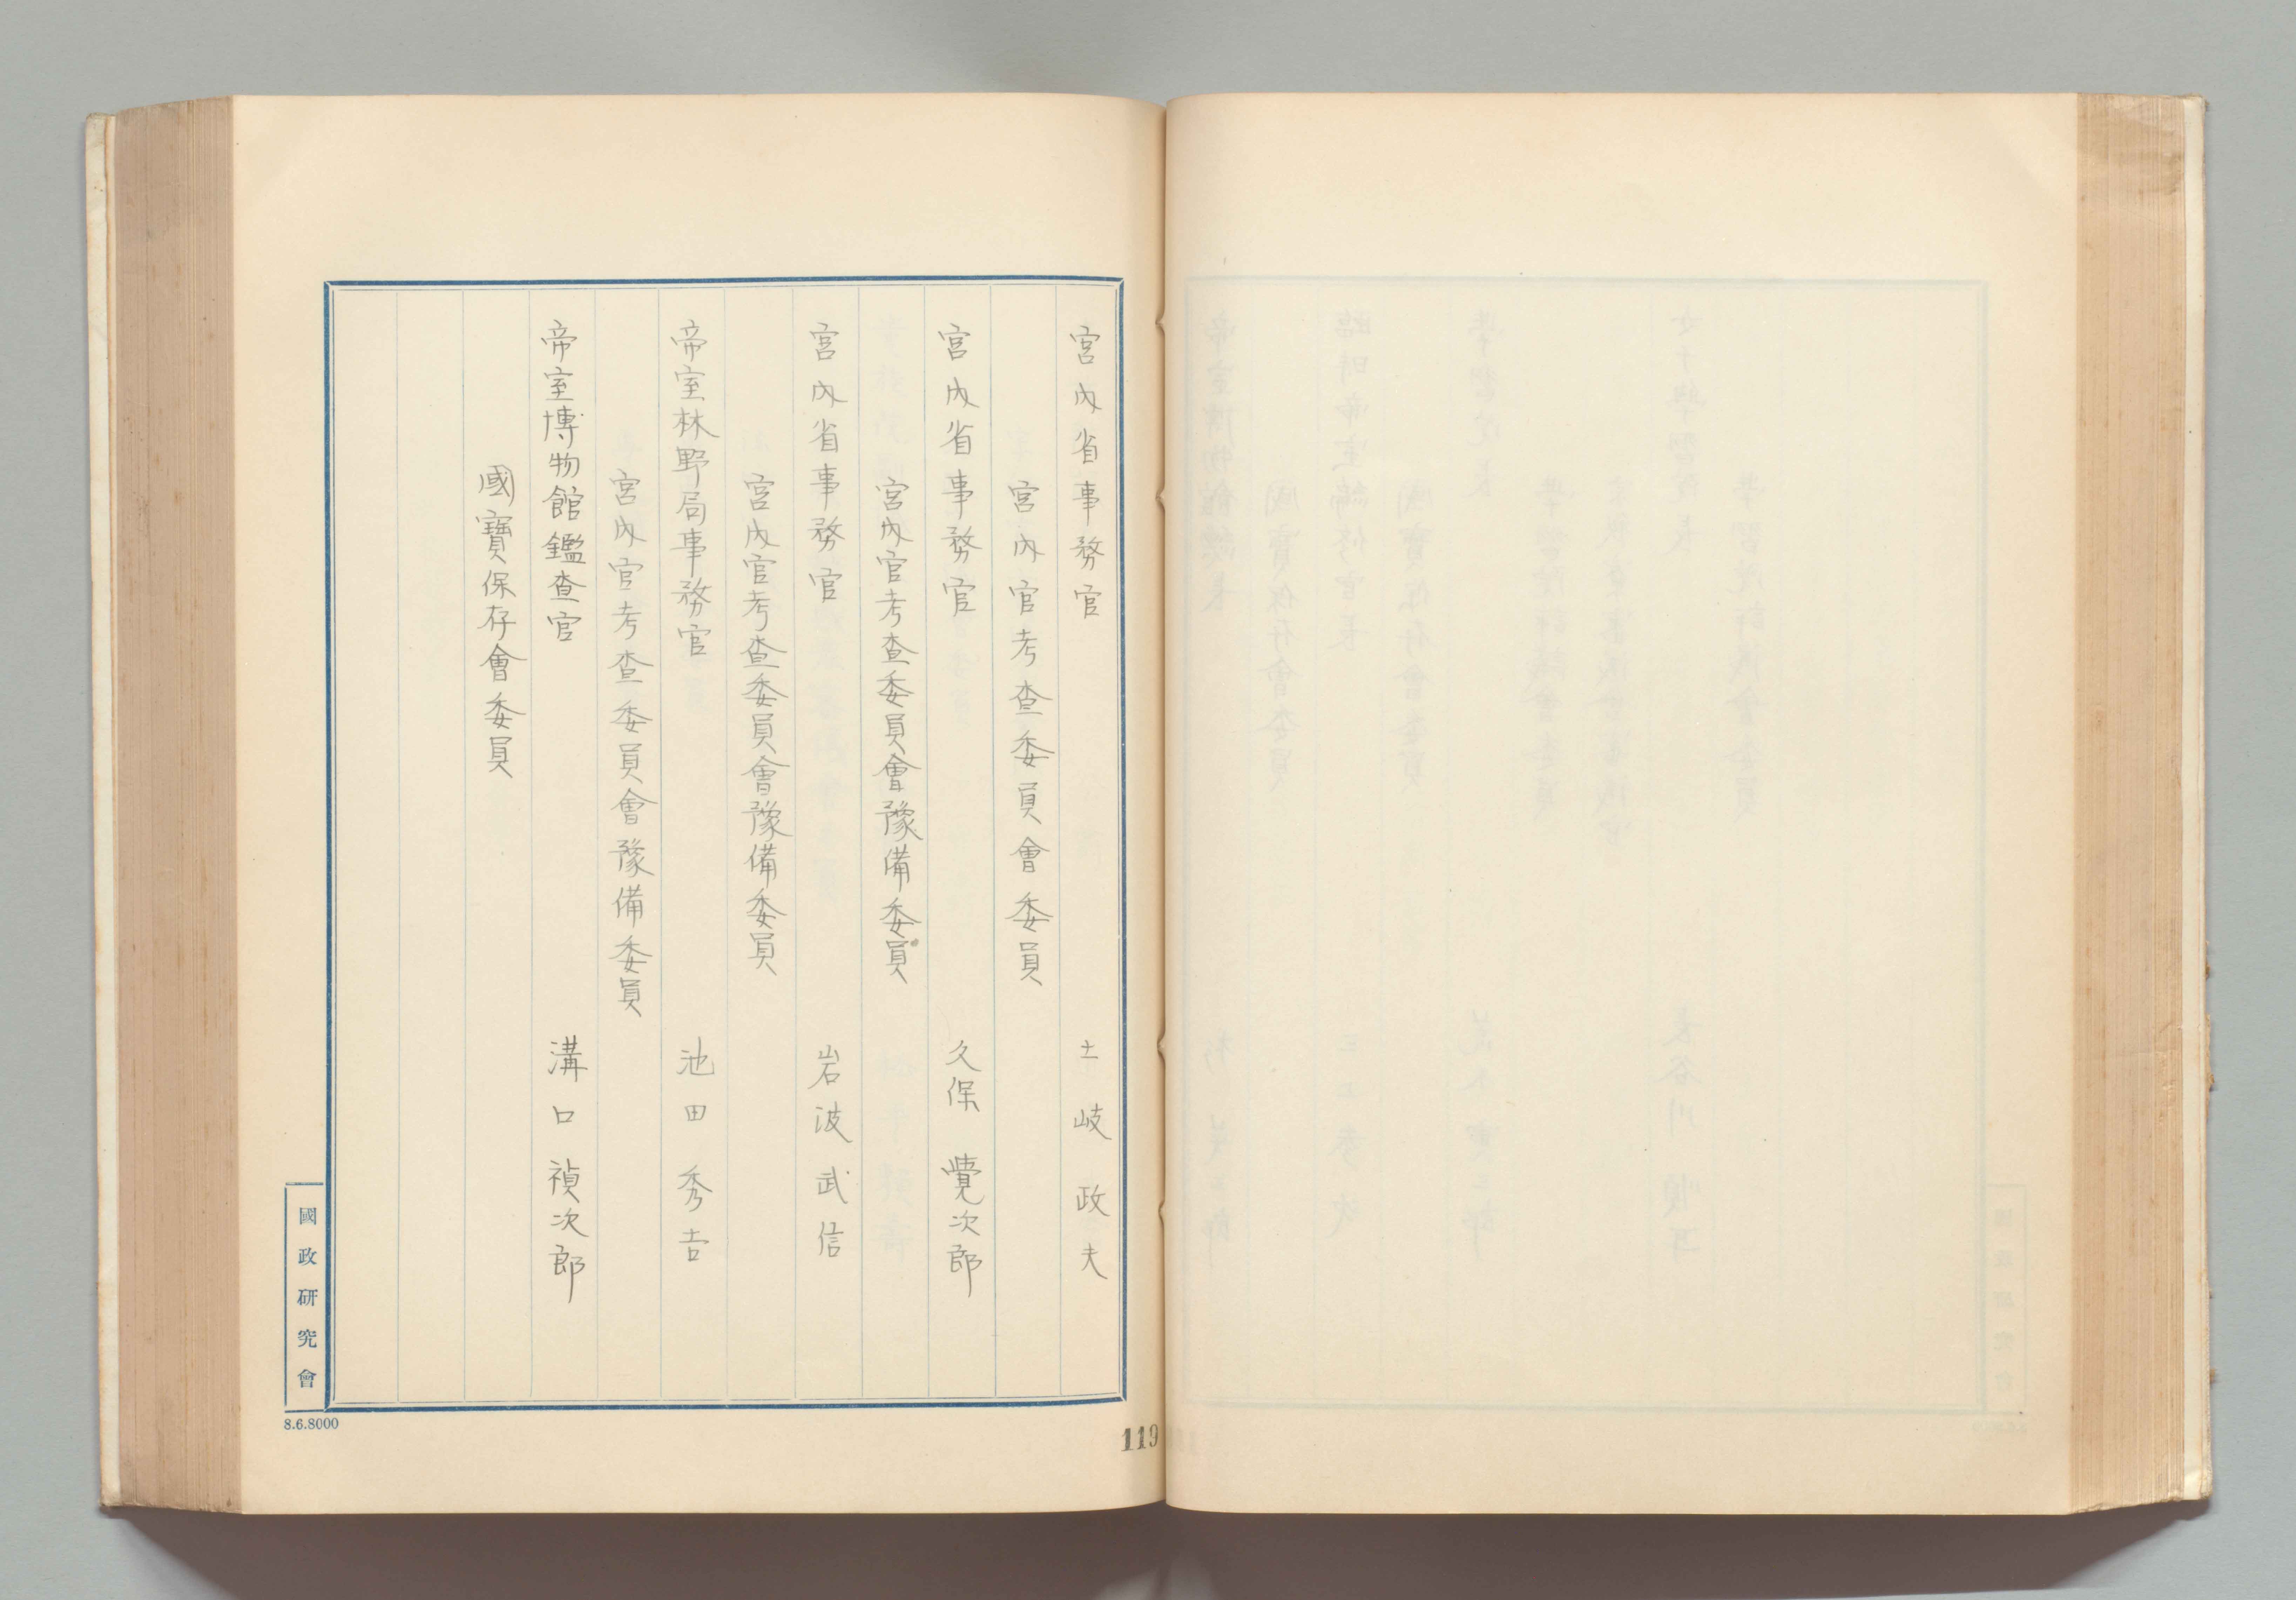 宮内省事務官 土岐政夫
宮内官考査委員會委員
宮内省事務官 久保覺次郎
宮内官考査委員會豫備委員
宮内省事務官 岩波武信
宮内官考査委員會豫備委員
帝室林野局事務官 池田秀吉
宮内官考査委員會豫備委員
帝室博物館鑑査官 溝口禎次郎
國寶保存會委員
國政研究會
8.6.8000
119